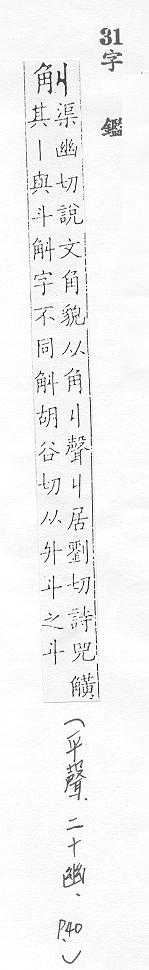 31字 鑑
觓
渠幽切說文角貌从角丩聲丩居劉切詩兕觵
其丨與斗斛字不同斛胡谷切从外斗之斗
（平聲、二十幽、P.40、）